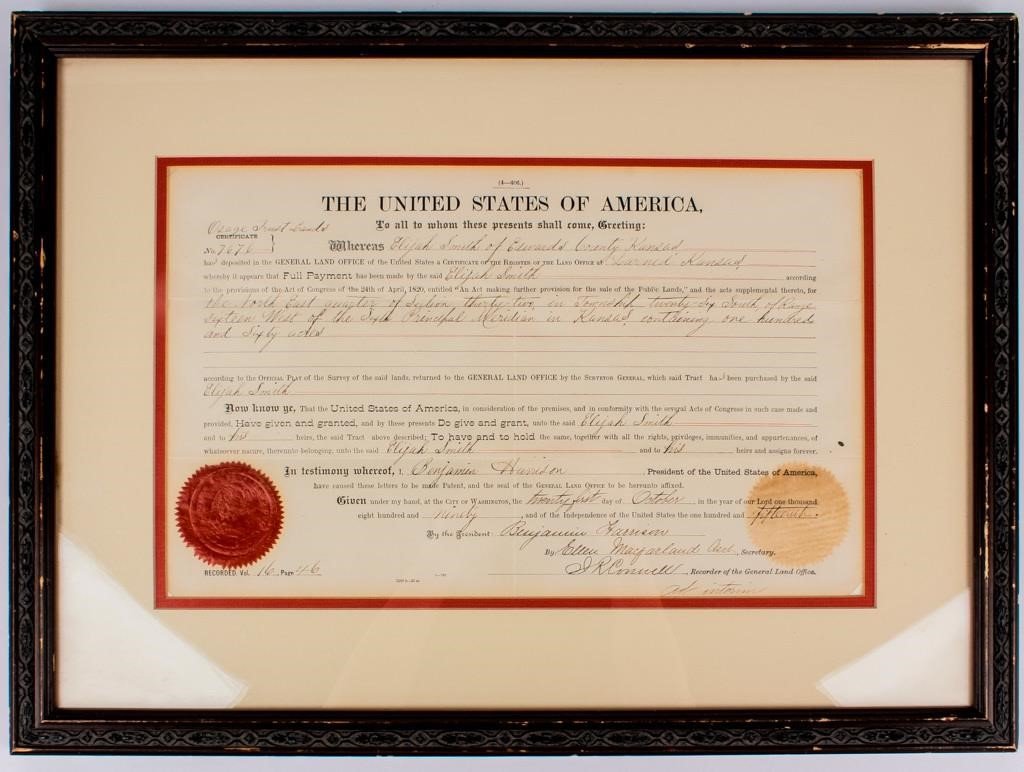 (4—406.)
THE UNITED STATES OF AMERICA,
To all to whom these presents shall come, Greeting:
Osage Trust Lands
CERTIFICATE
No. 7676 } Whereas Elijah Smith of Edwards County Kansas
has deposited in the GENERAL LAND OFFICE of the United States a CERTIFICATE OF THE REGISTER OF THE LAND OFFICE AT Larned Kansas,
whereby it appears that Full Payment has been made by the said Elijah Smith according
to the provisions of the Act of Congress of the 24th of April, 1820, entitled "An Act making further provision for the sale of the Public Lands," and the acts supplemental thereto, for
the North East quarter of Section thirty-two, in Township twenty-six South of Range
sixteen West of the Sixth Principal Meridian in Kansas, containing one hundred
and sixty acres
according to the OFFICIAL PLAT of the Survey of the said lands, returned to the GENERAL LAND OFFICE by the SURVEYOR GENERAL, which said Tract has been purchased by the said
Elijah Smith
Now know ye, That the United States of America, in consideration of the premises, and in conformity with the several Acts of Congress in such case made and
provided, Have given and granted, and by these presents Do give and grant, unto the said Elijah Smith
and to his heirs, the said Tract above described; To have and to hold the same, together with all the rights, privileges, immunities, and appurtenances, of
whatsoever nature, thereunto belonging, unto the said Elijah Smith and to his heirs and assigns forever.
In testimony whereof, I, Benjamin Harrison President of the United States of America,
have caused these letters to be made Patent, and the seal of the GENERAL LAND OFFICE to be hereunto affixed.
Given under my hand, at the CITY OF WASHINGTON, the twenty first day of October in the year of our Lord one thousand
eight hundred and ninety, and of the Independence of the United States the one hundred and fifteenth.
By the President: Benjamin Harrison
By Ellen Macfarland Asst. Secretary.
RECORDED, Vol. 16 Page 46 J R Conwell, Recorder of the General Land Office.
ad interim